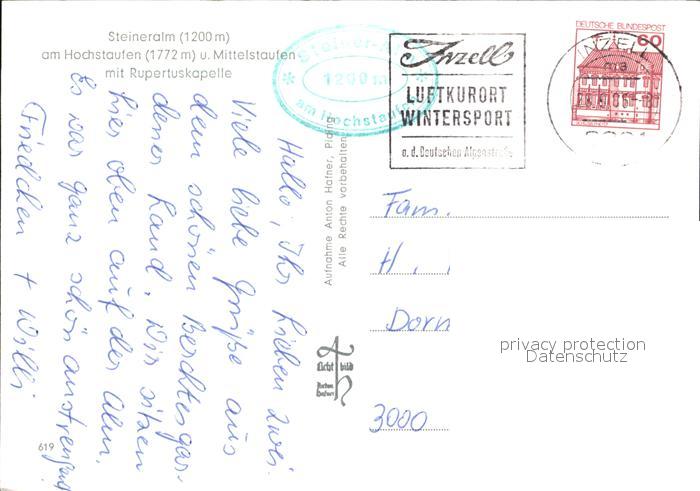 Steineralm (1200 m)
am Hochstaufen (1772 m) u. Mittelstaufen
mit Rupertuskapelle
Steiner-
1200 m
am Hochstaufen
Inzell
LUFTKURORT
WINTERSPORT
a. d. Deutschen Alpenstraße
DEUTSCHE BUNDESPOST
60
INZELL
Hallo, Ihr Lieben zwei.
Viele liebe Grüße aus
dem schönen Berchtesgar-
dener Land. Wir sitzen
hier oben auf der Alm.
Es war ganz schön anstrengend
Friedchen + Willi
Aufnahme Anton Hafner, Piding
Alle Rechte vorbehalten
Licht bild
Anton
Hafner
Fam.
H. .
Dorn
3000
privacy protection
Datenschutz
619